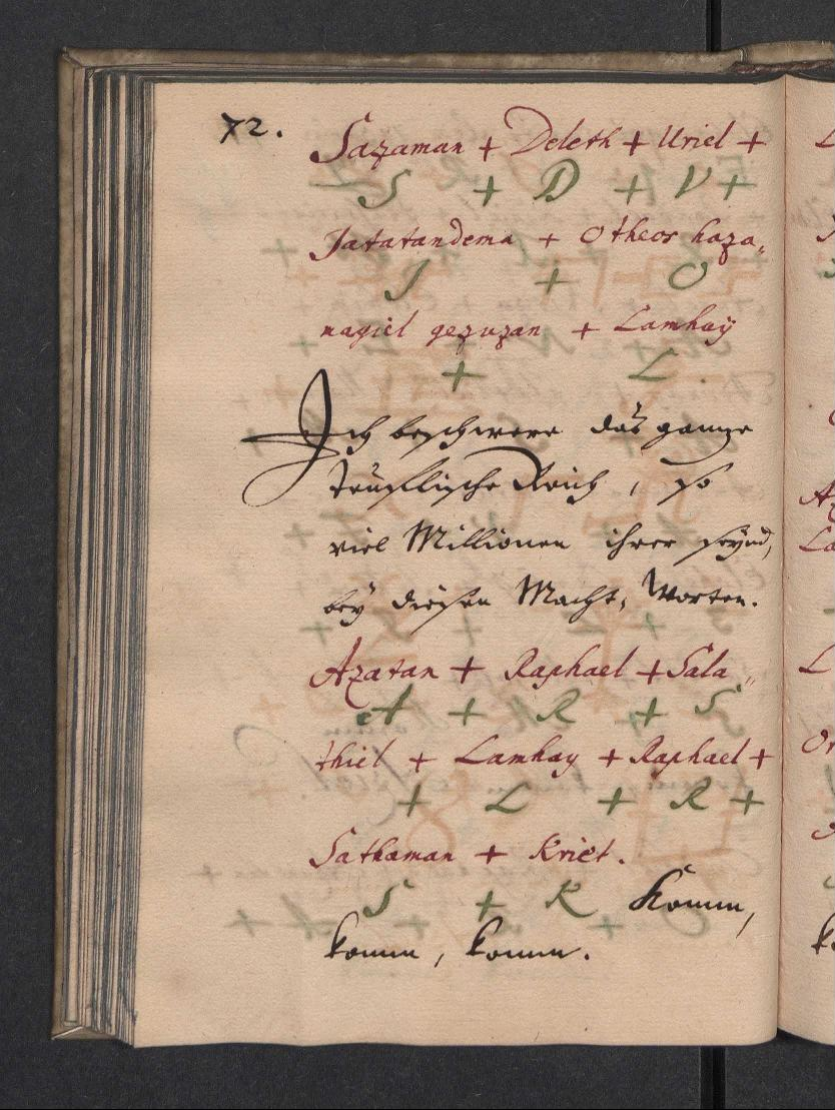 72. Sazaman + Deleth + Uriel +
S + D + V +
Jatatandema + Otheos haza„
J + O
nagiel gezuzan + Lamhaÿ
+ L.
Ich beschwere das ganze
teuflische Reich, so
viel Millionen ihrer seynd,
beÿ diesen Macht, Worten.
Azatan + Raphael + Sala„
A + R + S
thiel + Lamhay + Raphael +
+ L + R +
Sathaman + Kriet.
S + K Komm,
komm, komm.